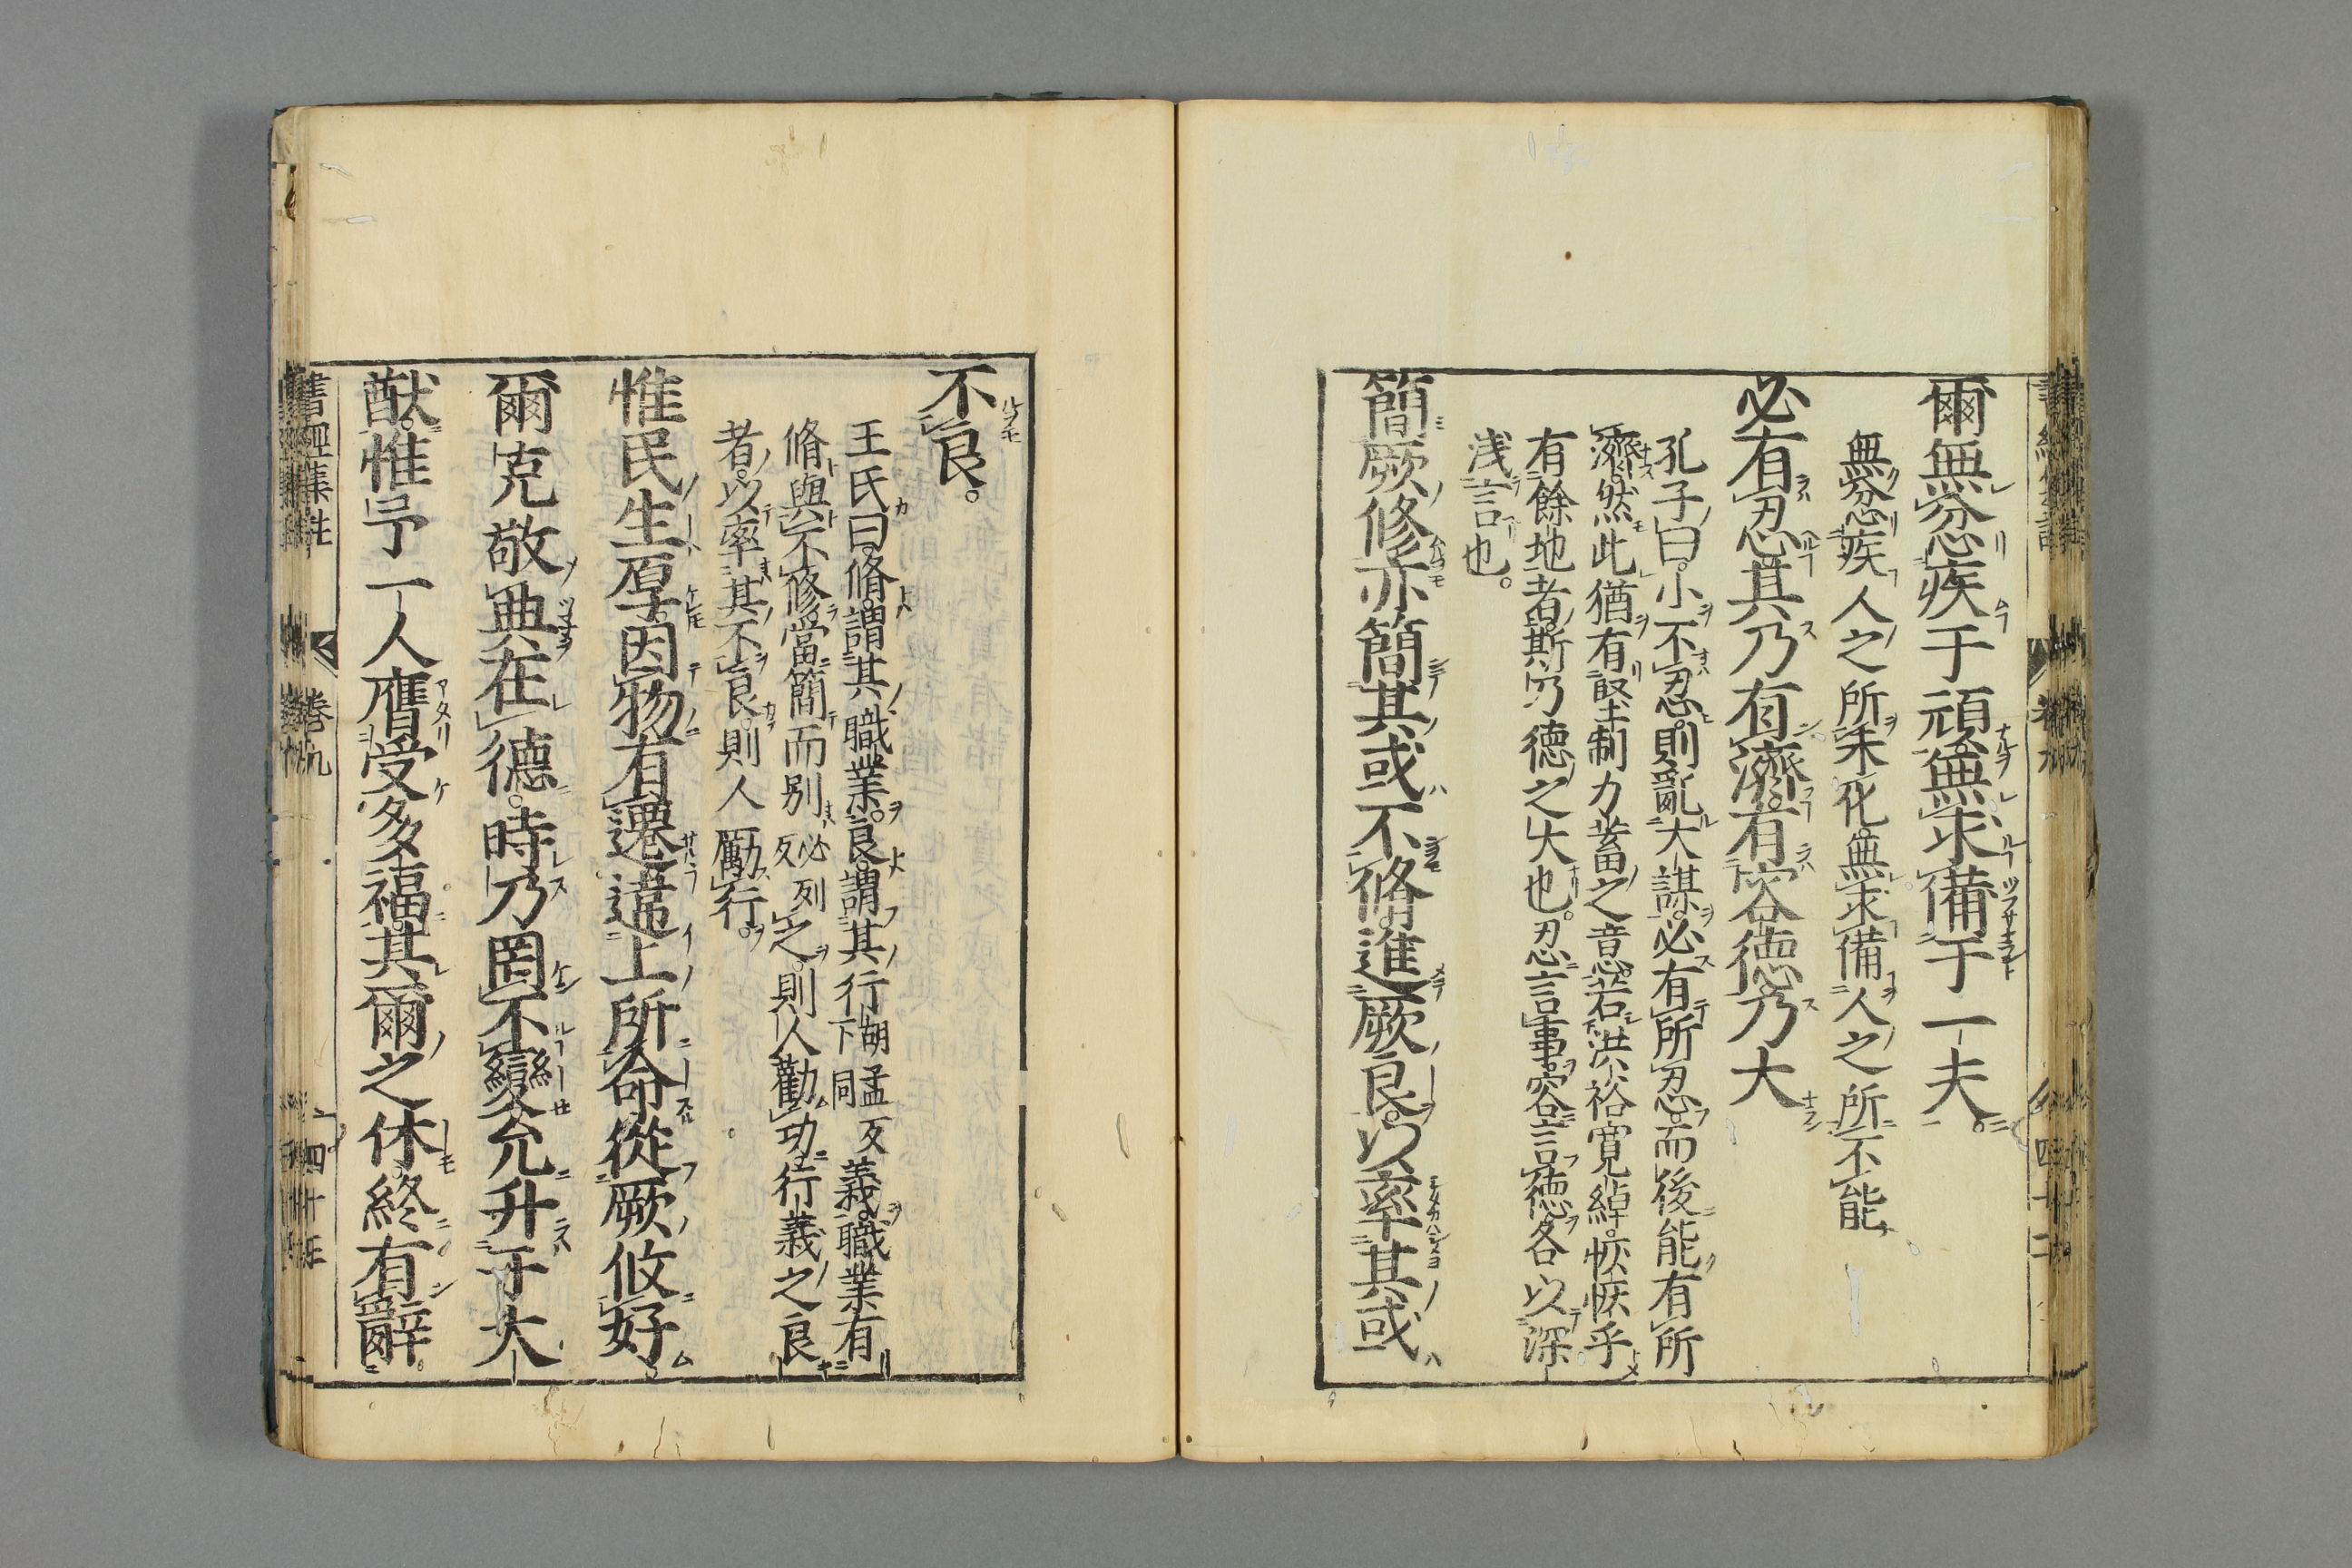 爾無忿疾于頑無求備于一夫。
無忿疾人之所未化。無求備人之所不能
必有忍其乃有濟。有容德乃大
孔子曰。小不忍則亂大謀。必有所忍。而後能有所
濟。然此猶有堅制力蓄之意。若洪裕寛綽。恢恢乎
有餘地者。斯乃德之大也。忍言事。容言德。各以深
浅言也。
簡厥修亦簡其或不脩。進厥良。以率其或
不良。
王氏曰。脩謂其職業。良謂其行胡孟反下同義。職業有
脩與不修。當簡而別必列反之。則人勸功。行義之良
者。以率其不良。則人勵行。
惟民生厚。因物有遷。違上所命。從厥攸好。
爾克敬典在德。時乃罔不變。允升于大
猷。惟予一人膺受多福。其爾之休。終有辭
書經集註 巻九 四十五